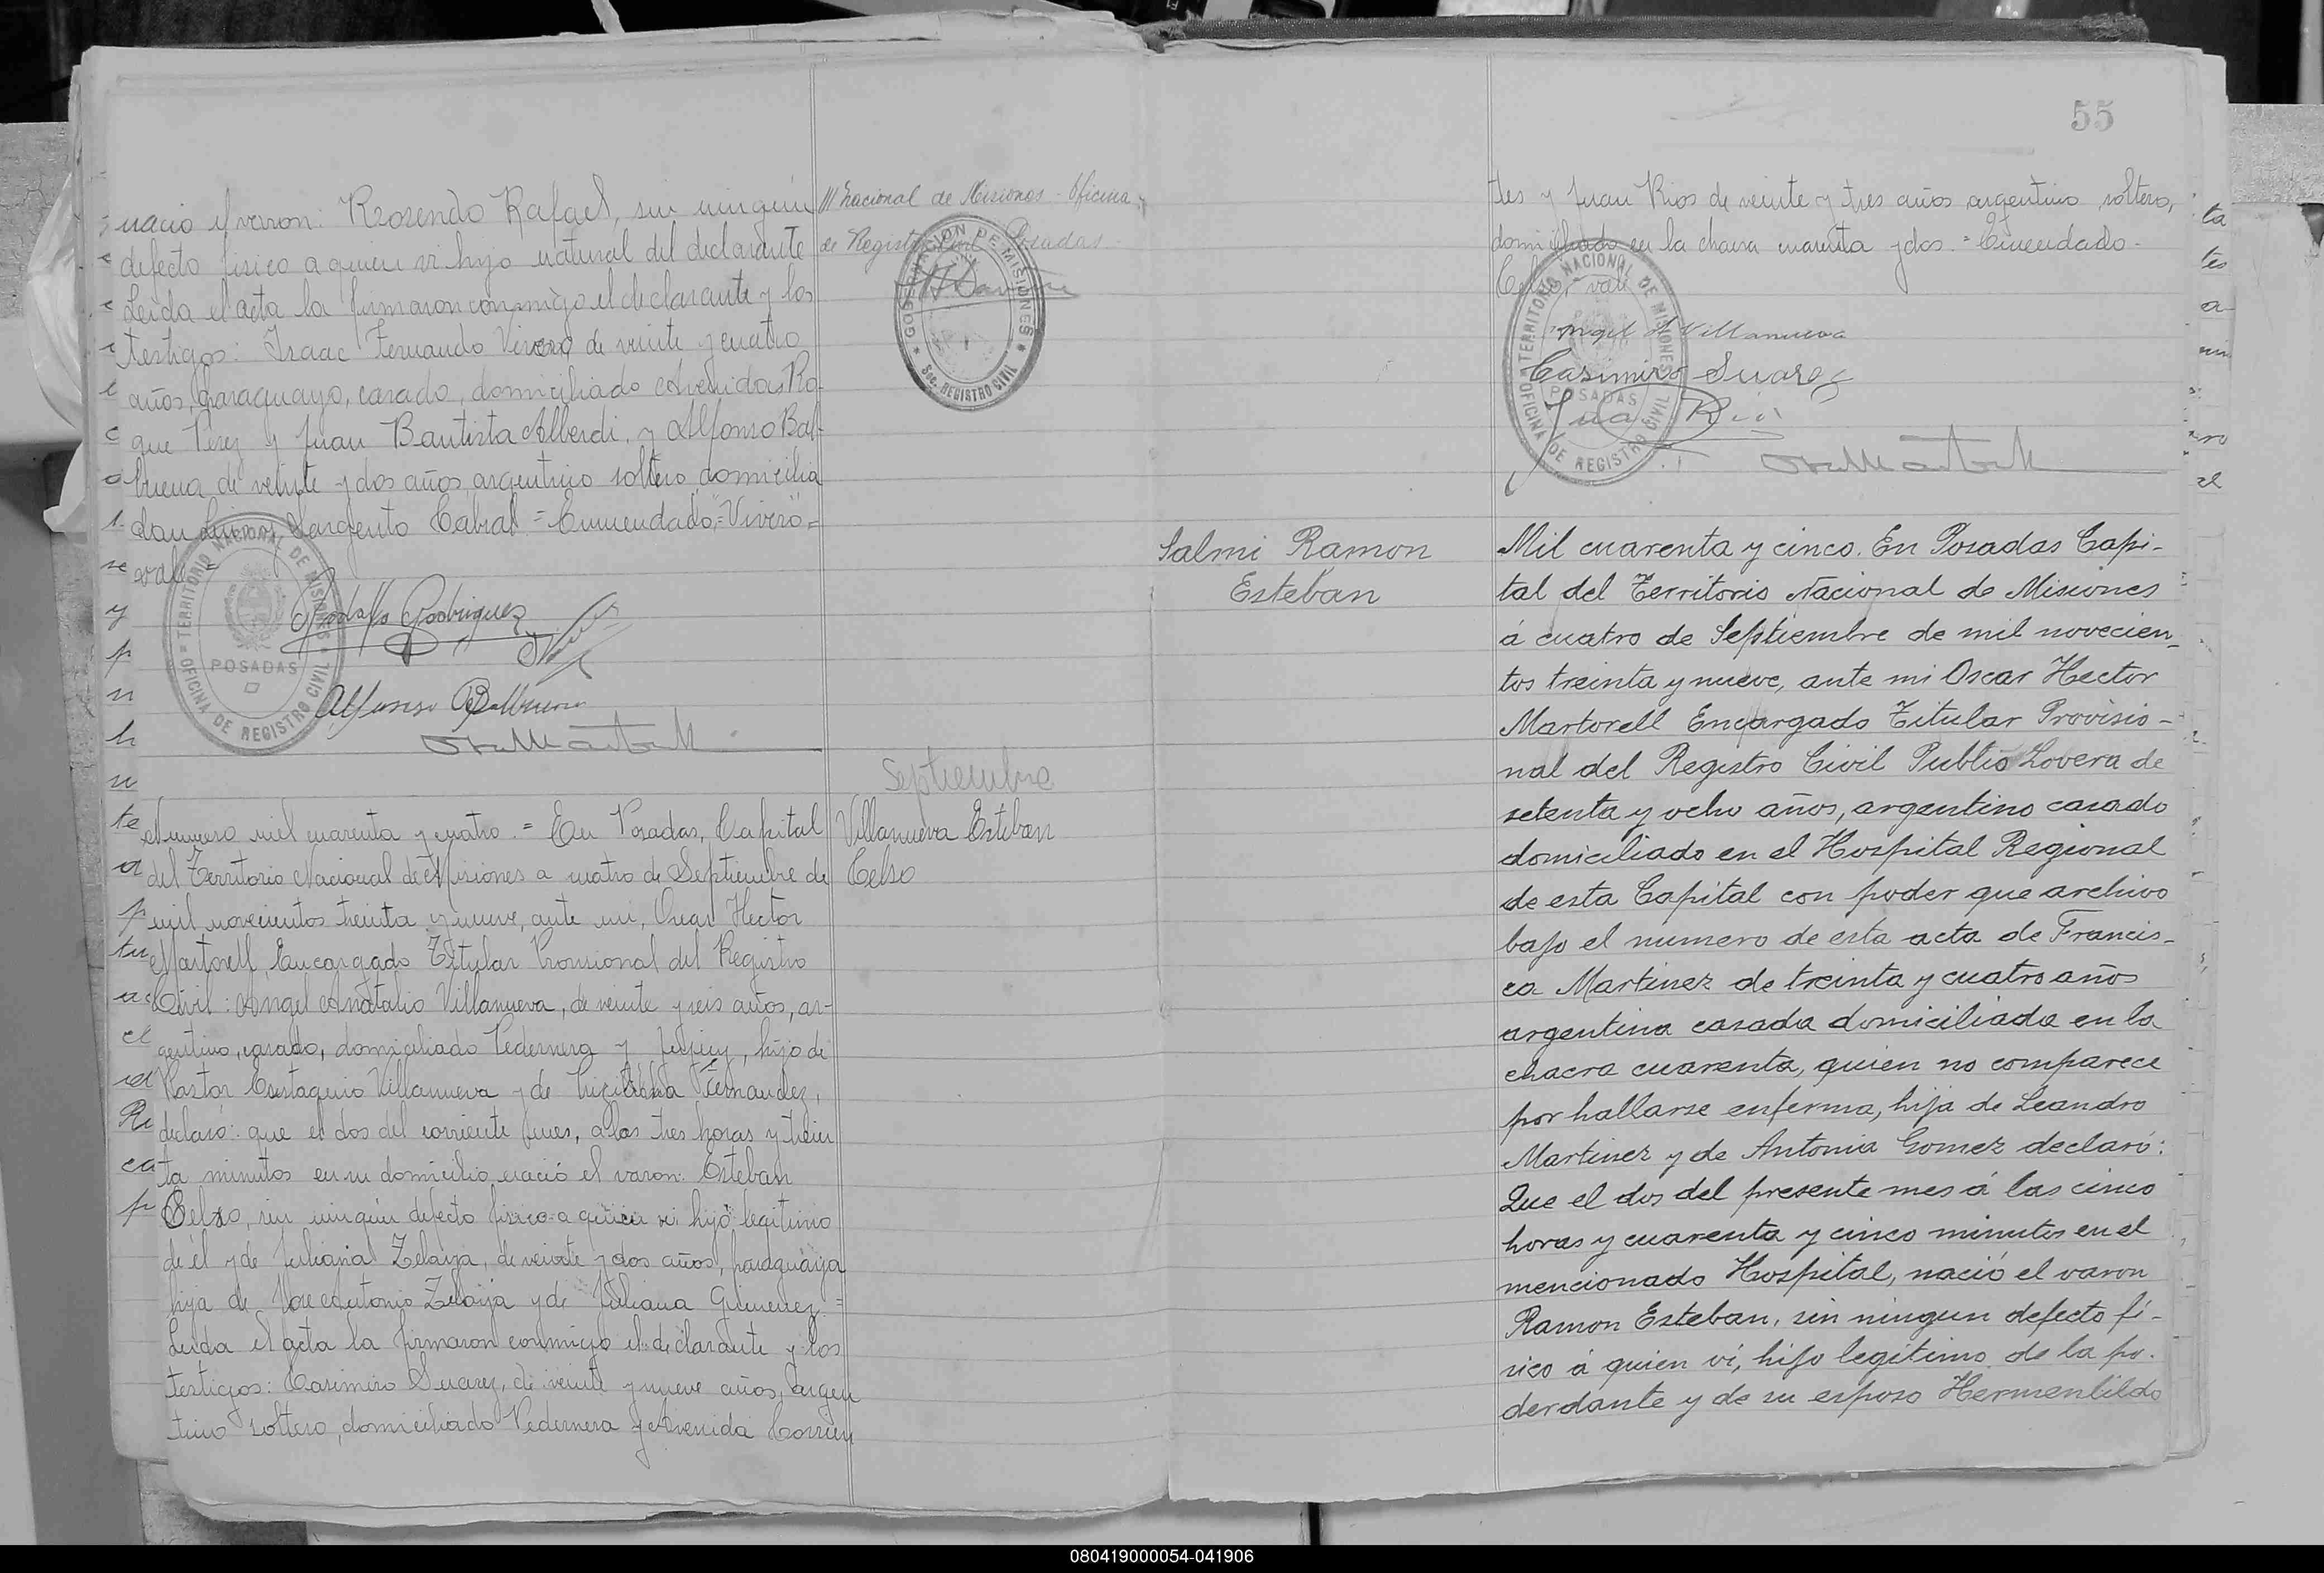 nacio el varon: Rosendo Rafael, sin ningún
defecto fisico a quien vi hijo natural del declarante
Leida el acta la firmaron conmigo el declarante y los
testigos: Isaac Fernando Vivero de veinte y cuatro
años, paraguayo, casado, domiciliado Avenidas Ro-
que Perez y Juan Bautista Alberdi, y Alfonso Bal-
buena de veinte y dos años argentino soltero domicilia
Sargento Cabral = Enmendado "Vivero" =
vale =
TERRITORIO NACIONAL DE MISIONES
POSADAS
OFICINA DE REGISTRO CIVIL
Rodolfo Rodriguez
Alfonso Balbuena
numero mil cuarenta y cuatro. = En Posadas, Capital
del Territorio Nacional de Misiones a cuatro de Septiembre de
mil novecientos treinta y nueve, ante mi, Oscar Hector
Martorell, Encargado Titular Provisional del Registro
Civil: Angel Anatalio Villanueva, de veinte y seis años, ar-
gentino, casado, domiciliado Pedernera y Jujuy, hijo de
Pastor Eustaquio Villanueva y de Fernandez,
declaró: que el dos del corriente mes, a las tres horas y trein
ta minutos en su domicilio nació el varon: Esteban
Celso, sin ningún defecto fisico a quien vi hijo legitimo
de él y de Juliana Zelaya, de veinte y dos años, paraguaya
hija de Jose Antonio Zelaya y de Juliana Gimenez =
Leida el acta la firmaron conmigo el declarante y los
testigos: Casimiro Suarez, de veinte y nueve años, argen
tino soltero, domiciliado Pedernera y Avenida Corrien
nacional de Misiones - Oficina
de Registro Civil Posadas -
GOBERNACION DE MISIONES
Sec. REGISTRO CIVIL
Septiembre
Villanueva Esteban
Celso
55
tes y Juan Rios de veinte y tres años argentino soltero,
domiciliado en la chacra cuarenta y dos. = Enmendado -
Celso, vale
TERRITORIO NACIONAL DE MISIONES
POSADAS
OFICINA DE REGISTRO CIVIL
Angel A Villanueva
Casimiro Suarez
Juan Rios
Salmi Ramon
Esteban
Mil cuarenta y cinco. En Posadas Capi-
tal del Territorio Nacional de Misiones
á cuatro de Septiembre de mil novecien-
tos treinta y nueve, ante mi Oscar Hector
Martorell Encargado Titular Provisio-
nal del Registro Civil Publio Lovera de
setenta y ocho años, argentino casado
domiciliado en el Hospital Regional
de esta Capital con poder que archivo
bajo el numero de esta acta de Francis-
ca Martinez de treinta y cuatro años
argentina casada domiciliada en la
chacra cuarenta, quien no comparece
por hallarse enferma, hija de Leandro
Martinez y de Antonia Gomez declaró:
Que el dos del presente mes á las cinco
horas y cuarenta y cinco minutos en el
mencionado Hospital, nació el varon
Ramon Esteban, sin ningun defecto fi-
sico á quien vi, hijo legitimo de la po-
derdante y de su esposo Hermenlildo
080419000054-041906